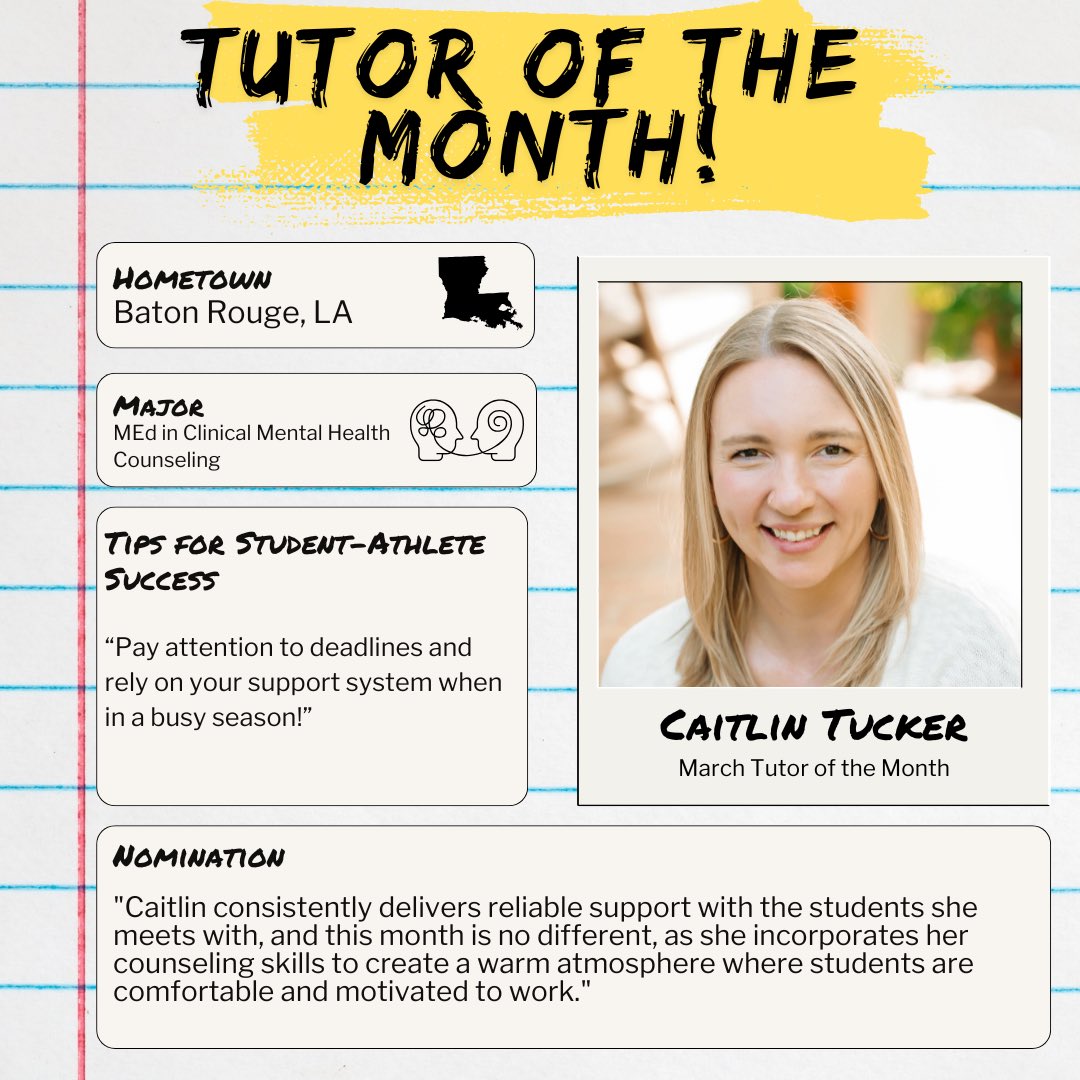 TUTOR OF THE
MONTH!
HOMETOWN
Baton Rouge, LA
MAJOR
MEd in Clinical Mental Health
Counseling
TIPS FOR STUDENT-ATHLETE
SUCCESS
“Pay attention to deadlines and
rely on your support system when
in a busy season!”
CAITLIN TUCKER
March Tutor of the Month
NOMINATION
"Caitlin consistently delivers reliable support with the students she
meets with, and this month is no different, as she incorporates her
counseling skills to create a warm atmosphere where students are
comfortable and motivated to work."